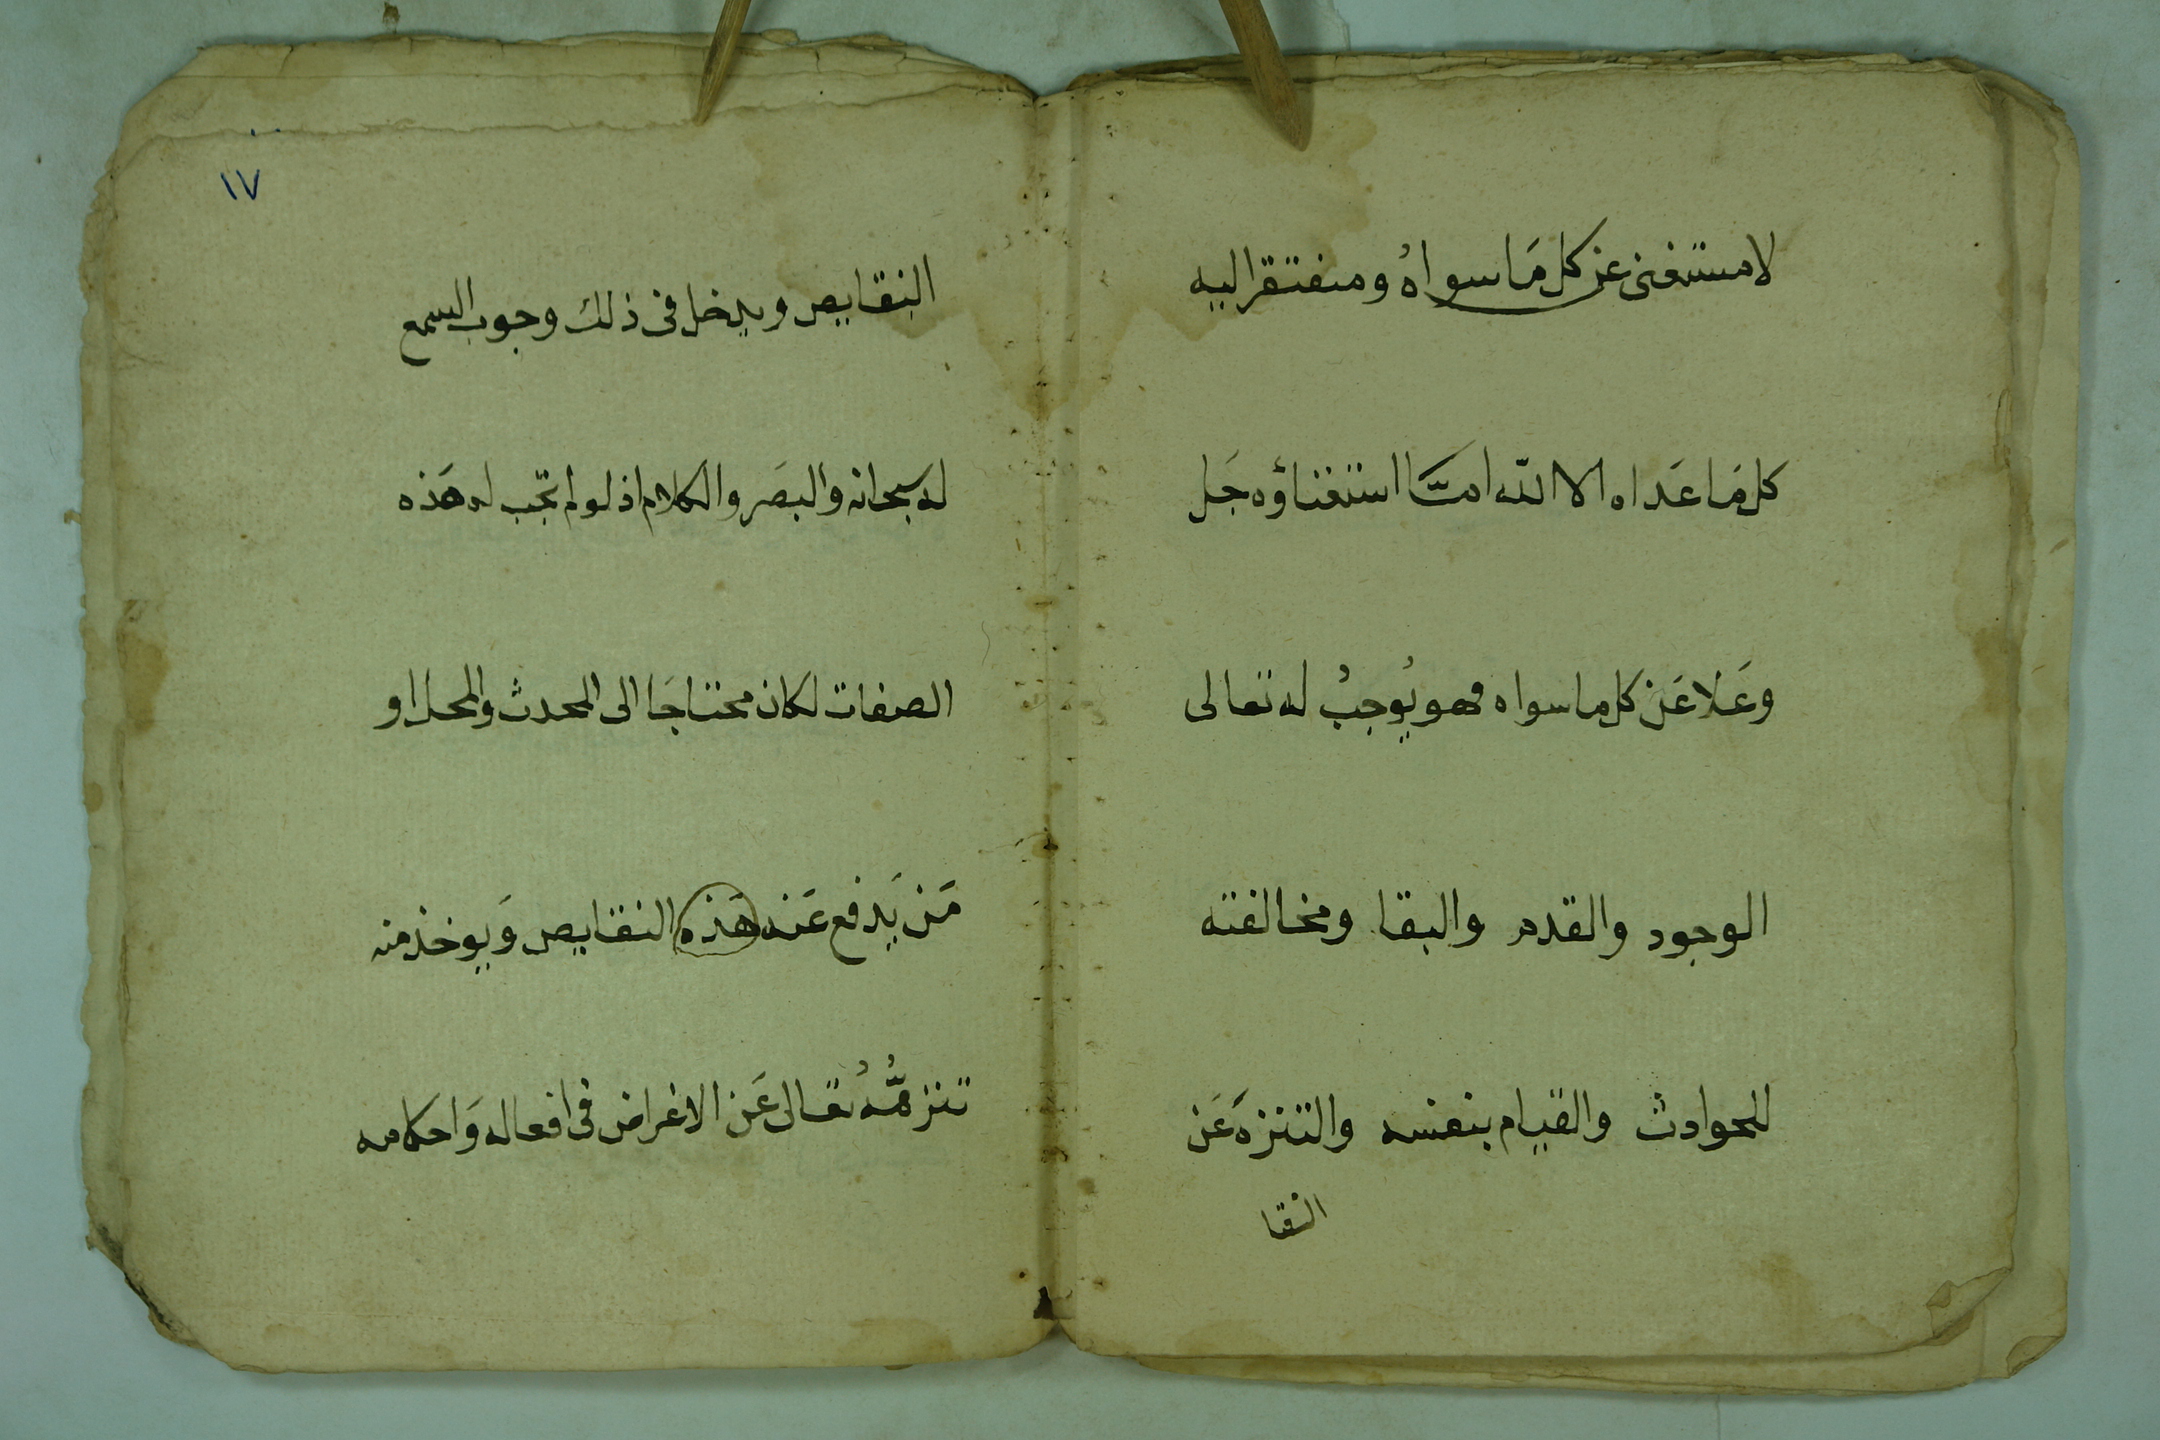 لا مستغنى عن كل مَا سواهُ ومفتقر اليه
كل مَا عَداه الا الله امَّا استغناؤه جَل
وعَلا عَن كل ما سواه فهو يُوجبُ له تعالى
الوجود والقدم والبقا ومخالفته
للحوادث والقيام بنفسه والتنزه عَن
النقا
١٧
النقايص ويدخل فى ذلك وجوب السمع
له سبحانه والبصَر والكلام اذ لو لم تجب له هَذه
الصفات لكان محتاجَا الى المحدث والمحل او
مَن يَدفع عَنه هَذه النقايص وَيوخذ منه
تنزهُّهُ تعالى عَن الاغراض فى افعاله وَاحكامه